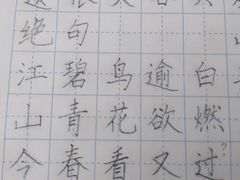 绝句
江碧鸟逾白
山青花欲燃
今春看又过
?